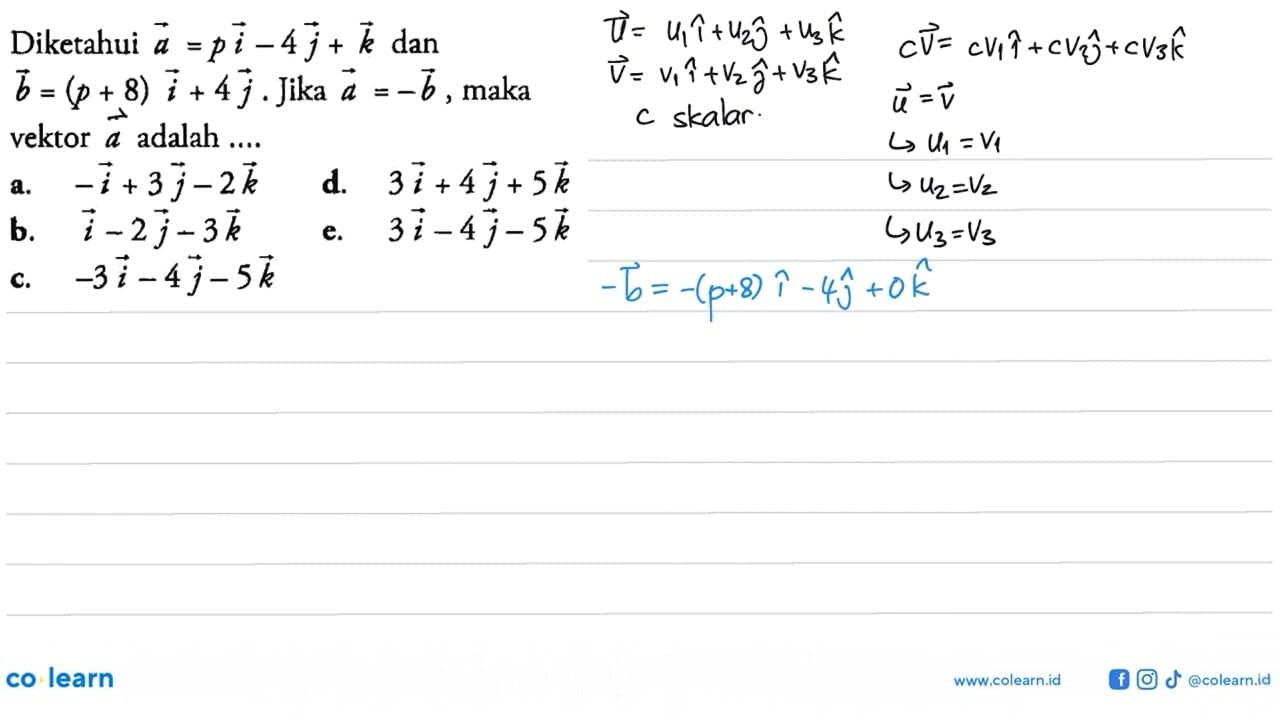 Diketahui a⃗ = p i⃗ – 4 j⃗ + k⃗ dan
b⃗ = (p + 8) i⃗ + 4 j⃗. Jika a⃗ = –b⃗, maka
vektor a⃗ adalah ....
a. –i⃗ + 3 j⃗ – 2 k⃗
b. i⃗ – 2 j⃗ – 3 k⃗
c. –3 i⃗ – 4 j⃗ – 5 k⃗
d. 3 i⃗ + 4 j⃗ + 5 k⃗
e. 3 i⃗ – 4 j⃗ – 5 k⃗
U⃗ = u₁î + u₂ĵ + u₃k̂
V⃗ = v₁î + v₂ĵ + v₃k̂
c skalar.
cV⃗ = cv₁î + cv₂ĵ + cv₃k̂
u⃗ = v⃗
↳ u₁ = v₁
↳ u₂ = v₂
↳ u₃ = v₃
-b⃗ = -(p+8) î - 4ĵ + 0k̂
co learn
www.colearn.id
@colearn.id